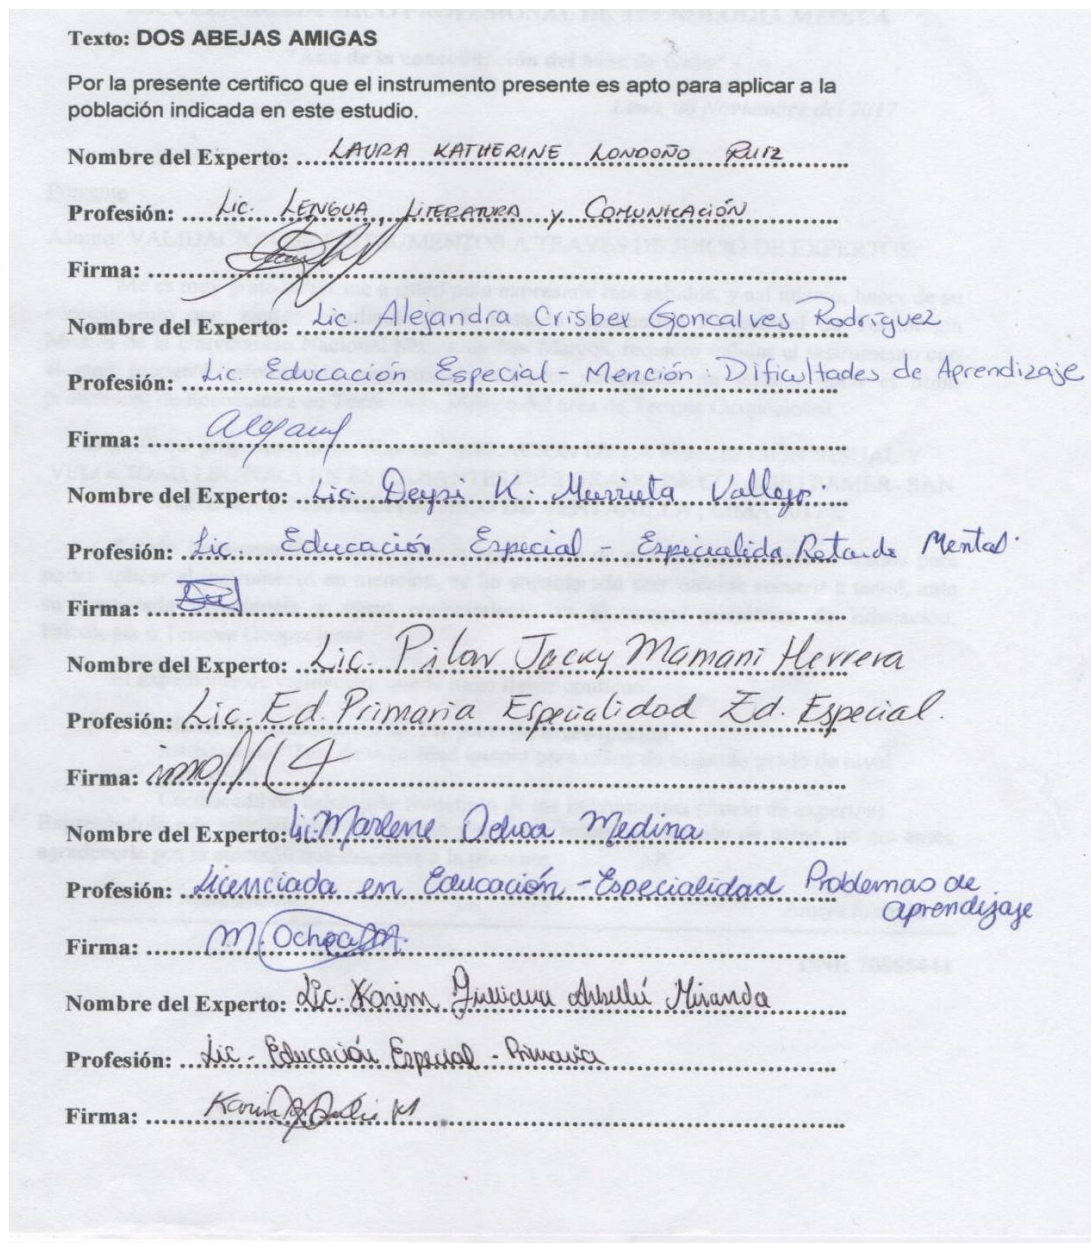 Texto: DOS ABEJAS AMIGAS
Por la presente certifico que el instrumento presente es apto para aplicar a la
población indicada en este estudio.
Nombre del Experto: LAURA KATHERINE LONDOÑO RUIZ
Profesión: Lic. LENGUA, LITERATURA y COMUNICACIÓN
Firma:
Nombre del Experto: Lic. Alejandra Crisbex Goncalves Rodríguez
Profesión: Lic. Educación Especial - Mención: Dificultades de Aprendizaje
Firma:
Nombre del Experto: Lic. Deysi K. Murrieta Vallejo.
Profesión: Lic. Educación Especial - Especialida Retardo Mental.
Firma:
Nombre del Experto: Lic. Pilar Jacky Mamani Herrera
Profesión: Lic. Ed. Primaria Especialidad Ed. Especial.
Firma:
Nombre del Experto: Lic. Marlene Ochoa Medina
Profesión: Licenciada en Educación - Especialidad Problemas de
aprendizaje
Firma: M. Ochoa M.
Nombre del Experto: Lic. Karim Miranda
Profesión: Lic - Educación Especial - Primaria
Firma: